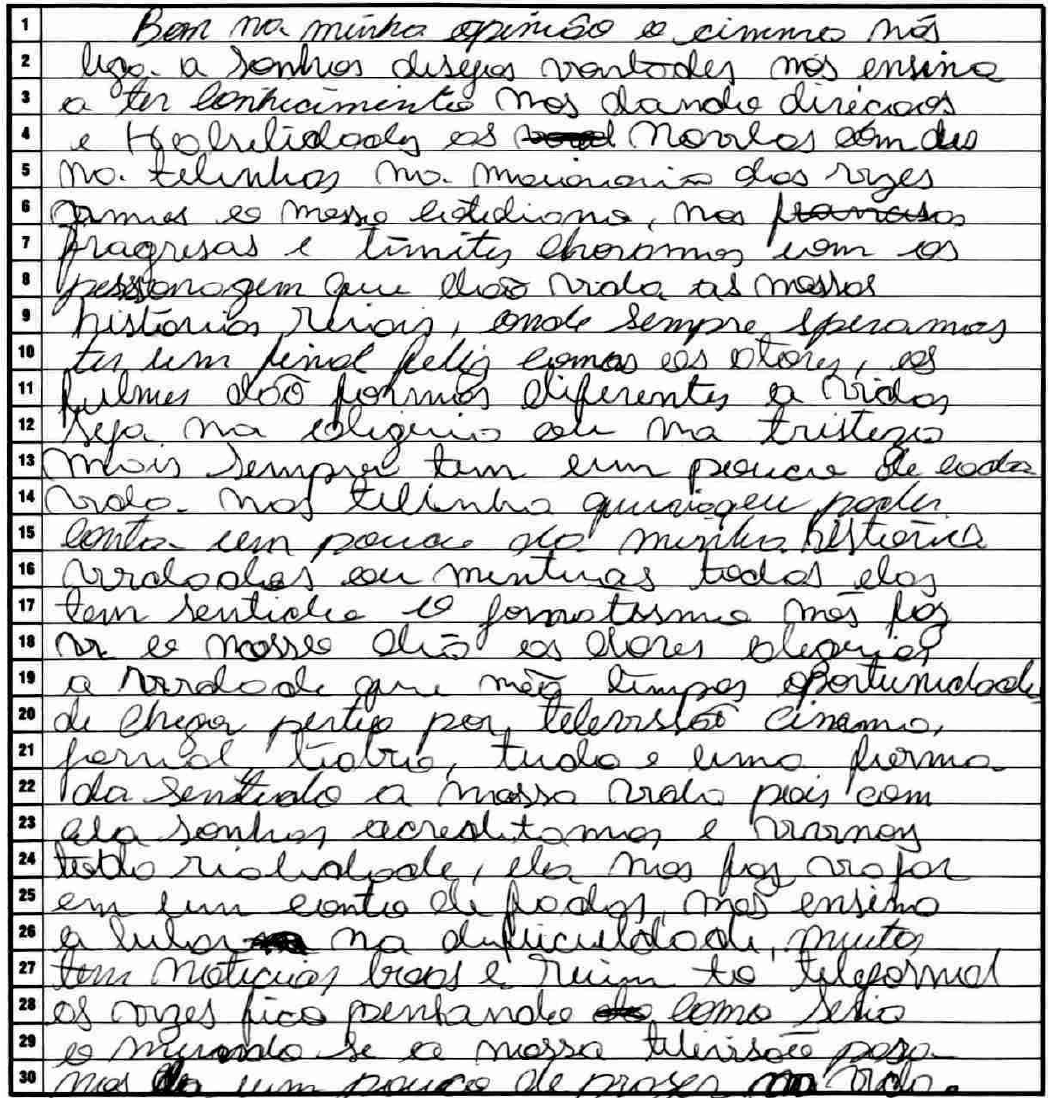 1 Bem na minha opinião o cinema nós
2 liga a sonhos desejos vontades nos ensina
3 a ter conhecimento nos dando direcoos
4 e as Novelas com
5 na telinhas na das vezes
6 o nosso cotidiano, nos
7 e choramos com os
8 pessonagem que dão vida as nossas
9 histórias reiais, onde sempre speramos
10 ter um final feliz comos os atores, os
11 fulmes dão formas diferentes a vidas
12 seja na alegria ou na tristeza
13 mais sempre tem um pouco de cada
14 vida. nas telinha poder
15 conta um pouco da minha história
16 verdades ou mentiras todas elas
17 tem sentido o nos faz
18 o nosso as dores alegrias
19 a verdade que não timpos oportunidade
20 de chega perto por televisão cinema,
21 jornal, tiatrio, tudo e uma forma
22 da sentido a nossa vida pois com
23 ela sonhos acreditamos e vivinos
24 rialidade, ela nos faz viajar
25 em um conto de fadas, nos ensina
26 a luta na muitas
27 tem noticias boas e ruim telejornal
28 as vezes fico pensando como seria
29 o mundo se a nossa televisão
30 nos um pouco de vida.